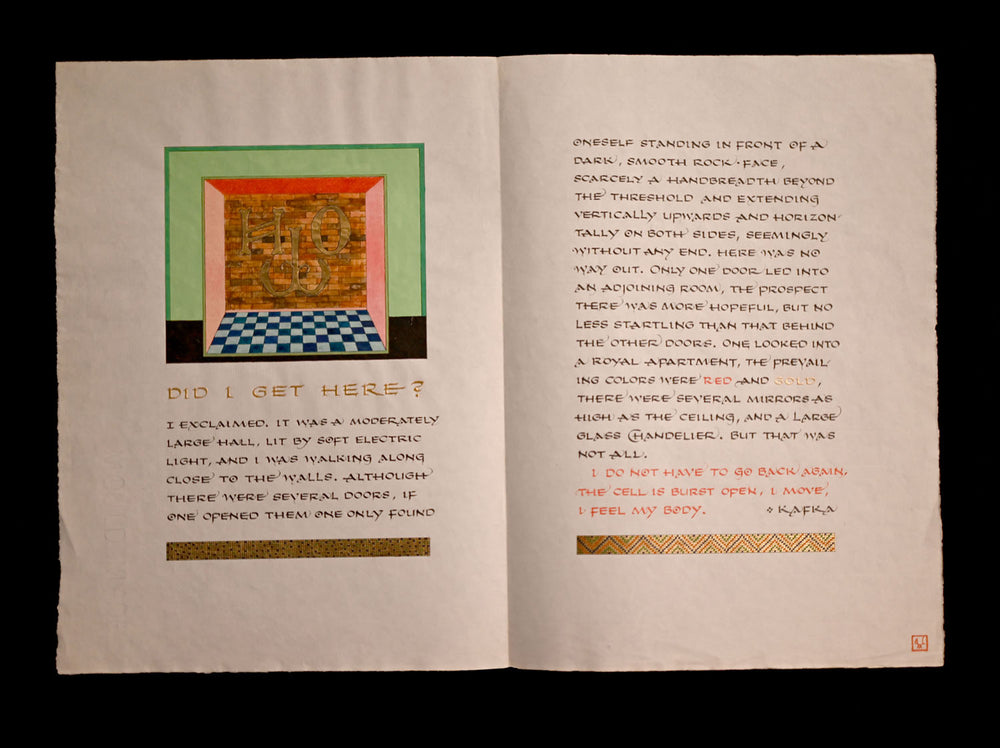 HOW
DID I GET HERE?
I EXCLAIMED. IT WAS A MODERATELY
LARGE HALL, LIT BY SOFT ELECTRIC
LIGHT, AND I WAS WALKING ALONG
CLOSE TO THE WALLS. ALTHOUGH
THERE WERE SEVERAL DOORS, IF
ONE OPENED THEM ONE ONLY FOUND
ONESELF STANDING IN FRONT OF A
DARK, SMOOTH ROCK-FACE,
SCARCELY A HANDBREADTH BEYOND
THE THRESHOLD AND EXTENDING
VERTICALLY UPWARDS AND HORIZON-
TALLY ON BOTH SIDES, SEEMINGLY
WITHOUT ANY END. HERE WAS NO
WAY OUT. ONLY ONE DOOR LED INTO
AN ADJOINING ROOM, THE PROSPECT
THERE WAS MORE HOPEFUL, BUT NO
LESS STARTLING THAN THAT BEHIND
THE OTHER DOORS. ONE LOOKED INTO
A ROYAL APARTMENT, THE PREVAIL-
ING COLORS WERE RED AND GOLD,
THERE WERE SEVERAL MIRRORS AS
HIGH AS THE CEILING, AND A LARGE
GLASS CHANDELIER. BUT THAT WAS
NOT ALL.
I DO NOT HAVE TO GO BACK AGAIN,
THE CELL IS BURST OPEN, I MOVE,
I FEEL MY BODY. KAFKA